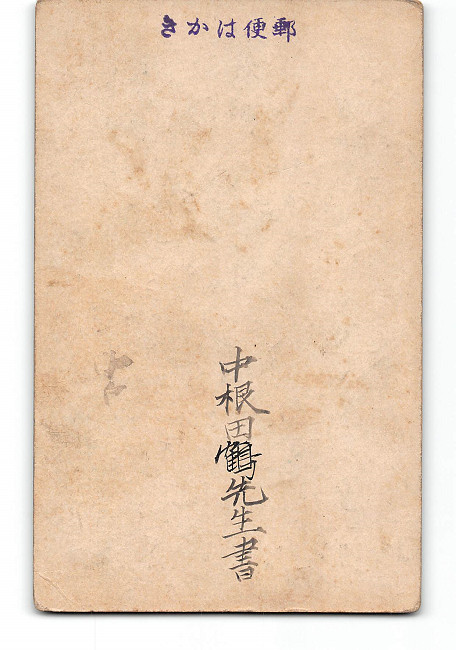 郵便はかき
中根田鶴先生書